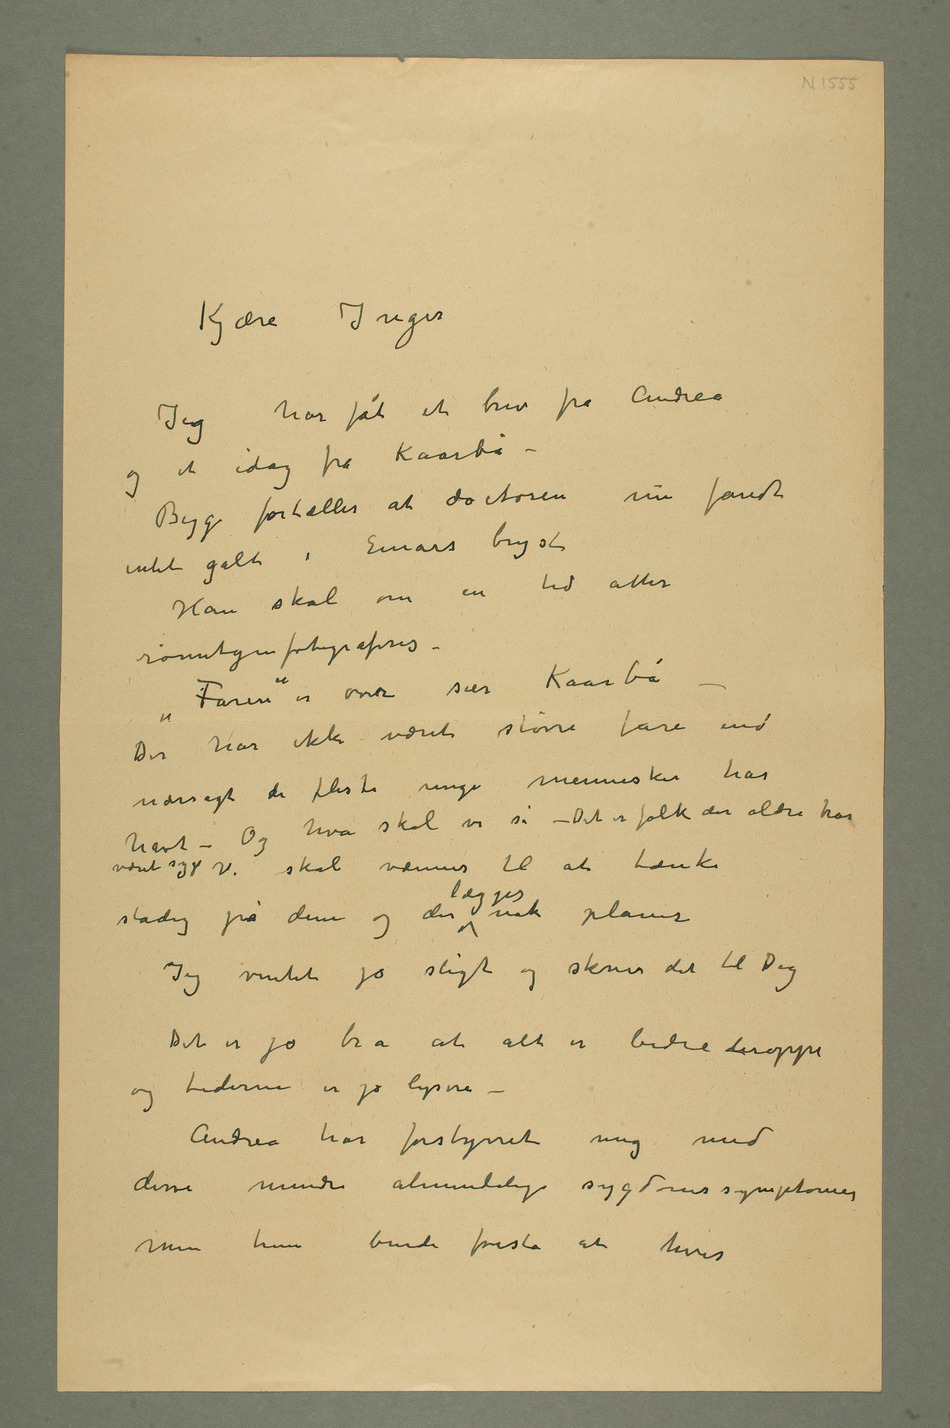 N 1555
Kjære Inger
Jeg har fåt et brev fra Andrea
og et idag fra Kaarbø –
Begge fortæller at doctoren nu fandt
intet galt i Einars bryst
Han skal om en tid atter
røntgenfotograferes –
„Faren“ er over sier Kaarbø –
Der har ikke været større fare end
nærsagt de fleste unge mennesker har
havt – Og hva skal vi si – Det er folk der aldri har
været syge Vi skal vænnes til at tænke
stadig på dem og der lægges nok planer
Jeg ventet jo sligt og skrev det til Dig
Det er jo bra at alt er bedre deroppe
og tiderne er jo lysere –
Andrea har forstyrret mig med
disse mindre almindelige sygdomssymptomer
men hun burde forstå at hvis